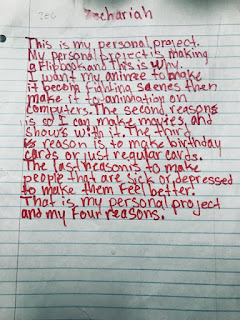 Zechariah
This is my personal project.
My personal project is making
a Flipbook and This is why.
I want my animee to make
it become fighting scenes then
make it to animation on
computers. The second reasons
is so I can make movies and
shows with it. The third
is reason is to make birthday
cards or just regular cards.
The last reason is to make
people that are sick or depressed
to make them Feel better.
That is my personal project
and my Four reasons.